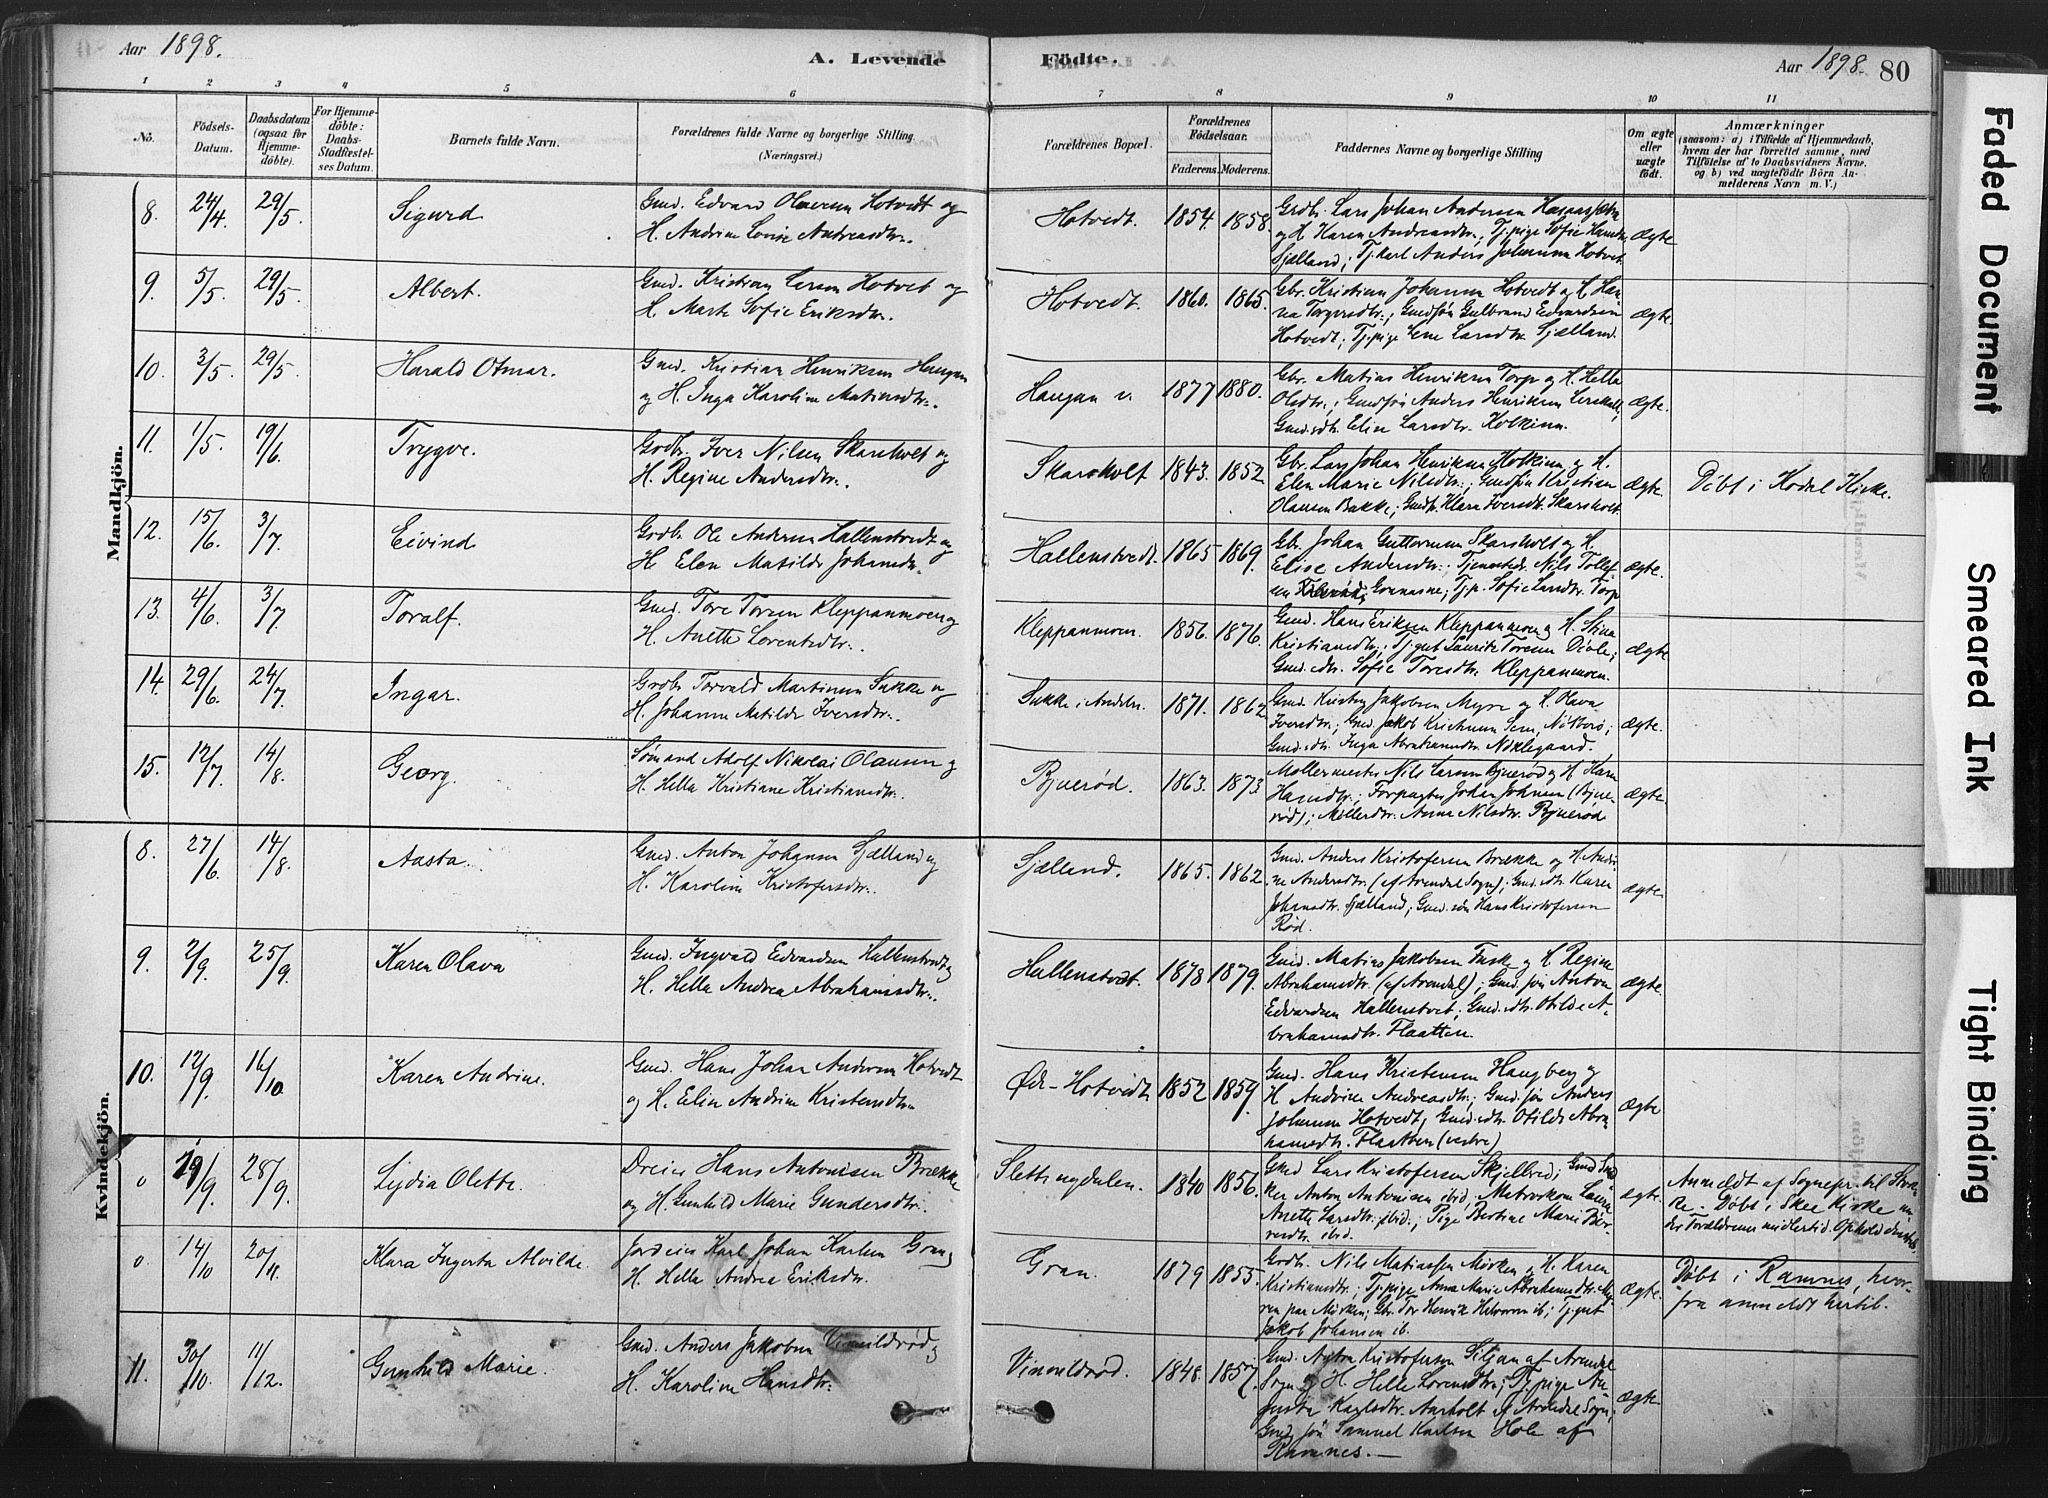 Aar 1898.
A. Levende
Födte.
Aar 1898.
80
1 2 3 4 5 6 7 8 9 10 11
No.
Födsels-
Datum.
Daabsdatum
(ogsaa for
Hjemme-
döbte).
For Hjemme-
döbte:
Daabs-
Stadfæstel-
ses Datum.
Barnets fulde Navn.
Forældrenes fulde Navne og borgerlige Stilling.
(Næringsvei.)
Forældrenes Bopæl.
Forældrenes
Födselsaar.
Faderens. Moderens.
Faddernes Navne og borgerlige Stilling
Om ægte
eller
uægte
födt.
Anmærkninger
(saasom: a) i Tilfælde af Hjemmedaab,
hvem der har forrettet samme, med
Tilföielse af to Daabsvidners Navne,
og b) ved uægtefödte Börn An-
melderens Navn m. V.)
Mandkjön.
8. 24/4 29/5. Sigurd
Gmd. Edvard Olavsen Hotvedt og
H. Andrine Lovise Andreasdtr.
Hotvedt. 1854. 1858.
Grdb. Lars Johan Andersen
og H. Karen Andreasdtr.; Tj.pige Sofie Hansdtr.
Sjælland; Tj.karl Anders Johannsen Hotvet.
Ægte
9. 5/5. 29/5. Albert.
Gmd. Kristian Larsen Hotvet og
H. Marte Sofie Eriksdtr.
Hotvedt. 1860. 1865.
Gbr. Kristian Johannsen Hotvedt og H. Han-
na Torgersdtr.; Gmdsøn Gulbrand Edvardsen
Hotvedt; Tj.pige Lene Larsdtr. Sjælland.
Ægte.
10. 3/5. 29/5. Harald Otmar.
Gmd. Kristian Henriksen Haugan
og H. Inga Karoline Matiasdtr.
Haugan v. 1877 1880.
Gbr. Matias Henriksen Torp og H. Hella
Olsdtr.; Gmdsøn Anders Henriksen
Gmd.sdtr. Elise Larsdtr. Holkinn.
Ægte.
11. 1/5. 19/6. Trygve.
Grdbr. Iver Nilsen Skarsholt og
H. Regine Andersdtr.
Skarsholt 1843. 1852
Gbr. Lars Johan Henriksen Holkinn og H.
Elen Marie Nilsdtr.; Gmdsøn Kristian
Olausen Bakke; Gmdtr. Klara Iversdtr. Skarsholt.
Ægte. Döbt i Kodal Kirke.
12. 15/6 3/7. Eivind
Grdbr. Ole Andersen Hallenstvedt og
H. Elen Matilde Johansdtr.
Hallenstvedt. 1865 1869.
Gb. Johan Guttormsen Skarsholt og H.
Elise Andersdtr.; Nils Tollef-
sen Tj.p. Sofie Larsdtr. Torp
Ægte.
13. 4/6. 3/7 Toralf.
Gmd. Tore Torsen Kleppanmoen og
H. Anette Lorentsdtr.
Kleppanmoen. 1856. 1876.
Gmd. Hans Eriksen Kleppanmoen og H. Stina
Kristiansdtr.; Tj.gut Lauritz Torsen
Gmd.sdtr. Sofie Toresdtr. Kleppanmoen.
Ægte
14. 29/6. 24/7. Ingar.
Grdbr. Torvald Martinsen Sukke og
H. Johanne Matilde Iversdtr.
Sukke i Andebu. 1871. 1862
Gmd. Jakobsen Myre og H. Olava
Iversdtr.; Gmd. Jakob Sem, Nøtterø;
Gmd.sdtr. Inga Abrahamsdtr.
Ægte.
15. 12/7. 14/8. Georg.
Sømand Adolf Nikolai Olausen og
H. Hella Kristiane Kristiansdtr.
Bjuerød. 1863. 1873
Møllermester Nils Larsen Bjuerød og H. Karen
Hansdtr.; Forpagter Johan Johnsen (Bjue-
rød); Møllersdtr. Anna Nilsdtr. Bjuerød
Ægte.
Kvindekjön.
8. 27/6. 14/8. Aasta.
Gmd. Anton Johansen Sjælland og
H. Karoline Kristofersdtr.
Sjælland. 1865. 1862
Gmd. Anders Kristofersen Brække og H. Andri-
ne Andersdtr. (af Arendal Sogn); Gmd.sdtr. Karen
Johansdtr. Sjælland; Gmd.søn Hans Kristofersen
Rød.
Ægte.
9. 2/9. 25/9. Karen Olava
Gmd. Ingvald Edvardsen Hallenstvedt og
H. Hella Andrea Abrahamsdtr.
Hallenstvedt. 1878 1879.
Gmd. Matias Jakobsen og H. Regine
Abrahamsdtr. (af Arendal); Gmd.søn Anton
Edvardsen Hallenstvet; Gmd.sdtr. Otilde A-
brahamsdtr. Flaatten.
Ægte.
10. 12/9. 16/10. Karen Andrine.
Gmd. Hans Johan Andersen Hotvedt
og H. Elise Andrine Kristensdtr.
Ødr-Hotvedt 1852 1859.
Gmd. Hans Kristensen Haugberg og
H. Andrine Andreasdtr.; Gmd.søn Anders
Johannsen Hotvedt; Gmd.sdtr. Otilde Abra-
hamsdtr. Flaatten (vestre)
Ægte
0 19/9. 28/9. Lydia Olette.
Dreier Hans Antonisen Brække
og H. Gunhild Marie Gundersdtr.
Slettingdalen. 1840 1856.
Gmd Lars Kristofersen Skjelbred; Gmd
Anton Antonisen ibid;
Anette Larsdtr. ibid.; Pige Bertine Marie
ibid.
Ægte. Anmeldt af Sognepr. til Stok-
ke. Döbt i Skee Kirke un-
der Forældrenes midlertid. Ophold
0 14/10 20/11. Klara Ingerta Alvilde.
Jordeier Karl Johan Karlsen Gran og
H. Hella Andrea Eriksdtr.
Gran. 1879 1855.
Grdbr. Nils Matiassen Mörken og H. Karen
Kristiansdtr.; Tj.pige Anna Marie Abrahamsdtr.
Mörken; Gbr. Tor Henrik ib; Tj.gut
Jakob Johansen ib.
Ægte. Döbt i Ramnes, hvor-
fra anmeldt hertil.
11. 30/10. 11/12. Gunhild Marie.
Gmd. Anders Jakobsen Vivuldrød og
H. Karoline Hansdtr.
Vivuldrød. 1848. 1857.
Gmd. Anton Kristofersen af Arendal
Sogn og H. Helle Lorensdtr.; Tj.pige Au-
gusta Karlsdtr. Aarholt af Arendal Sogn;
Gmd.søn Samuel Karlsen Hole af
Ramnes.
Ægte.
Faded Document
Smeared Ink
Tight Binding